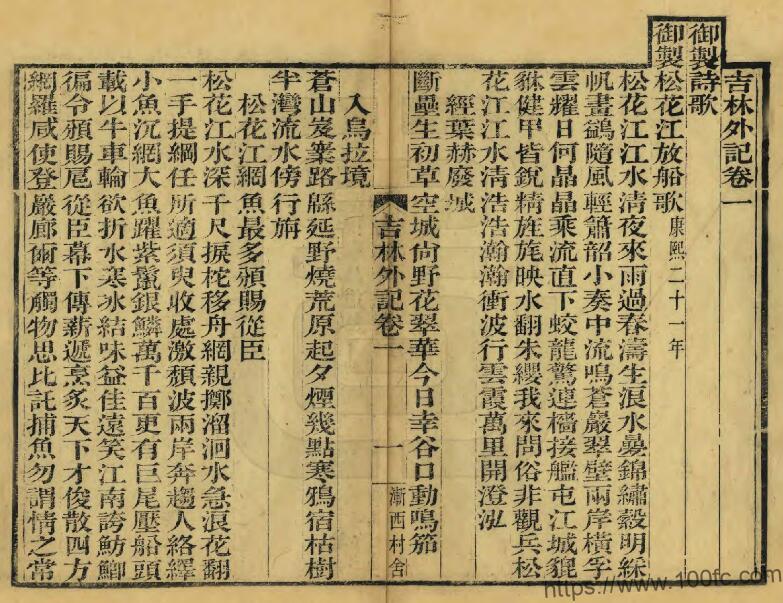 吉林外記卷一
御製詩歌
御製松花江放船歌康熙二十一年
松花江江水清夜來雨過春濤生浪水疊錦繡縠明綵
帆畫鷁隨風輕簫韶小奏中流鳴蒼巖翠壁兩岸橫孚
雲耀日何晶晶乘流直下蛟龍驚連檣接艦屯江城貔
貅健甲皆銳精旌旄映水翻朱纓我來問俗非觀兵松
花江江水清浩浩瀚瀚衝波行雲霞萬里開澄泓
經葉赫廢城
斷壘生初草空城尙野花翠華今日幸谷口動鳴笳
吉林外記卷一
一
漸西村舍
入烏拉境
蒼山岌業路緜延野燒荒原起夕煙幾點寒鴉宿枯樹
半灣流水傍行旃
松花江網魚最多頒賜從臣
松花江水深千尺捩柁移舟網親擲溜洄水急浪花翻
一手提綱任所適須臾收處激頽波兩岸奔趨人絡繹
小魚沉網大魚躍紫鬣銀鱗萬千百更有巨尾壓船頭
載以牛車輪欲折水寒冰結味益佳遠笑江南誇魴鯽
徧令頒賜扈從臣幕下傳薪遞烹炙天下才俊散四方
網羅咸使登嚴廊爾等觸物思比託捕魚勿謂情之常
https://www.100fc.com